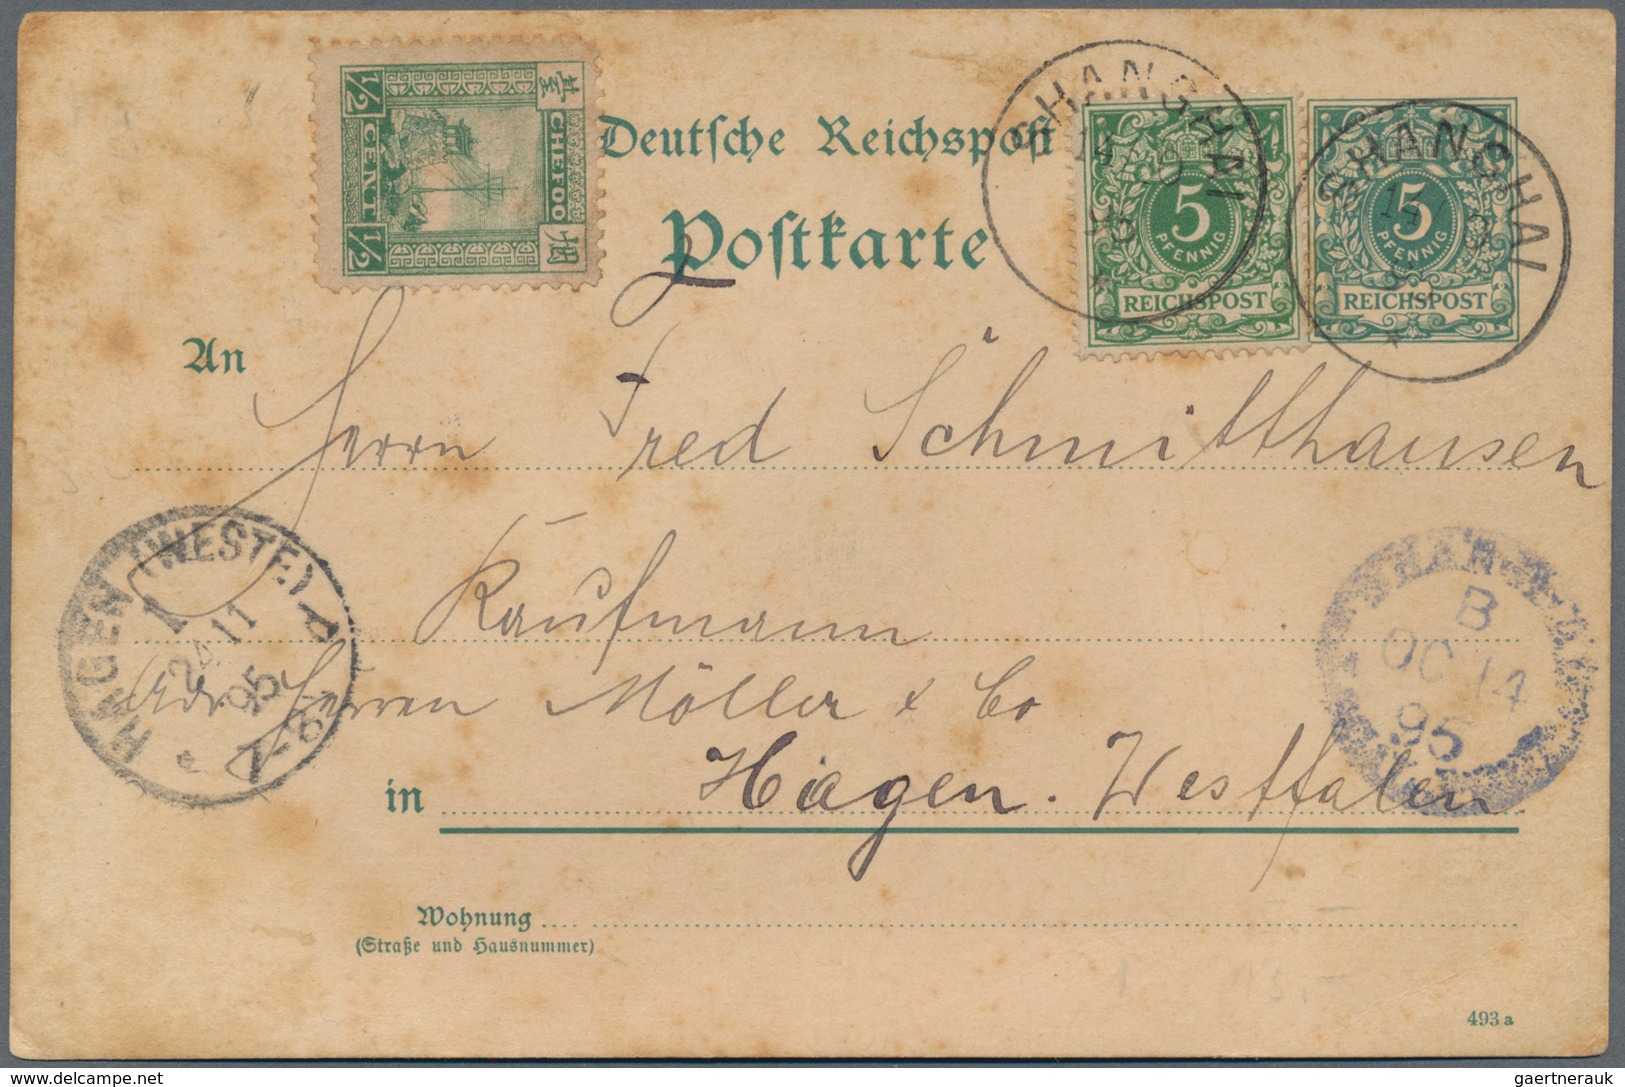 ½ CENT ½
CHEFOO
烟臺
Deutsche Reichspost
Postkarte
SHANGHAI
14
95
*
5
PFENNIG
REICHSPOST
SHANGHAI
14
*
5
PFENNIG
REICHSPOST
An
Herrn Fred Schmitthausen
Kaufmann
Adr Herren Möller & Co
in Hagen. Westfalen
HAGEN (WESTF.)
1
24 11
95
7-8
*
SHANGHAI
B
OC 14
95
Wohnung
(Straße und Hausnummer)
493 a
delcampe.net
gaertnerauk